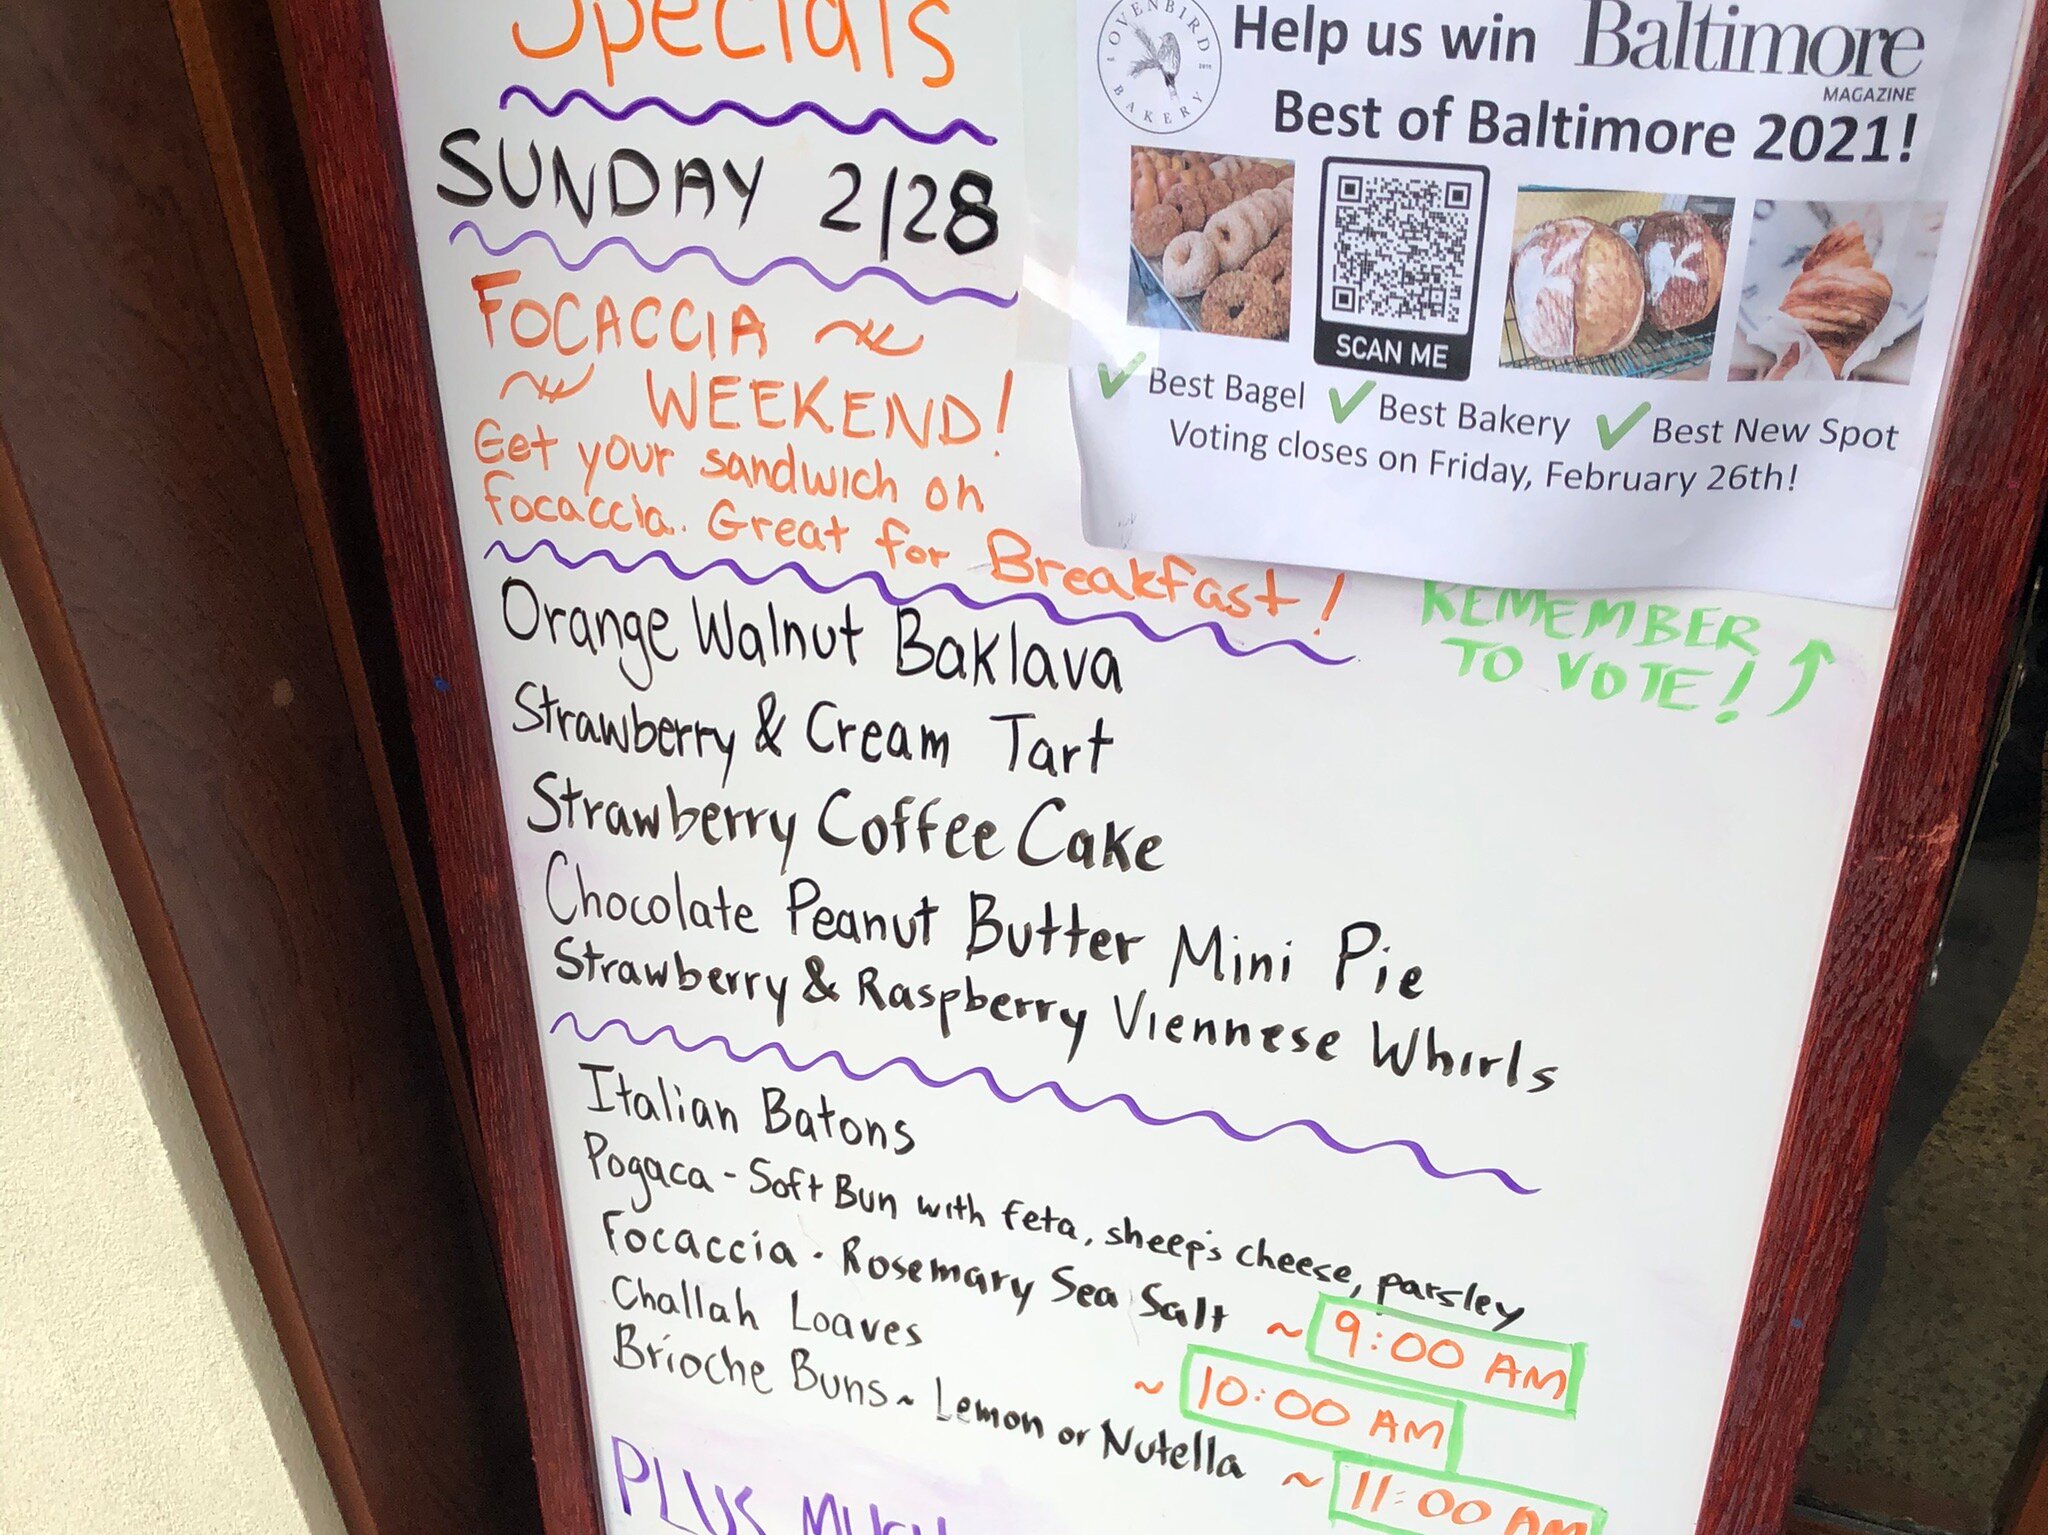 Specials
SUNDAY 2/28
FOCACCIA ~
~ WEEKEND!
Get your sandwich on
focaccia. Great for Breakfast!
Orange Walnut Baklava
Strawberry & Cream Tart
Strawberry Coffee Cake
Chocolate Peanut Butter Mini Pie
Strawberry & Raspberry Viennese Whirls
Italian Batons
Pogaca - Soft Bun with feta, sheep's cheese, parsley
Focaccia - Rosemary Sea Salt ~ 9:00 AM
Challah Loaves ~ 10:00 AM
Brioche Buns ~ Lemon or Nutella ~ 11:00 AM
PLUS MUCH
OVENBIRD
BAKERY
Help us win Baltimore
MAGAZINE
Best of Baltimore 2021!
SCAN ME
✓ Best Bagel ✓ Best Bakery ✓ Best New Spot
Voting closes on Friday, February 26th!
REMEMBER
TO VOTE!